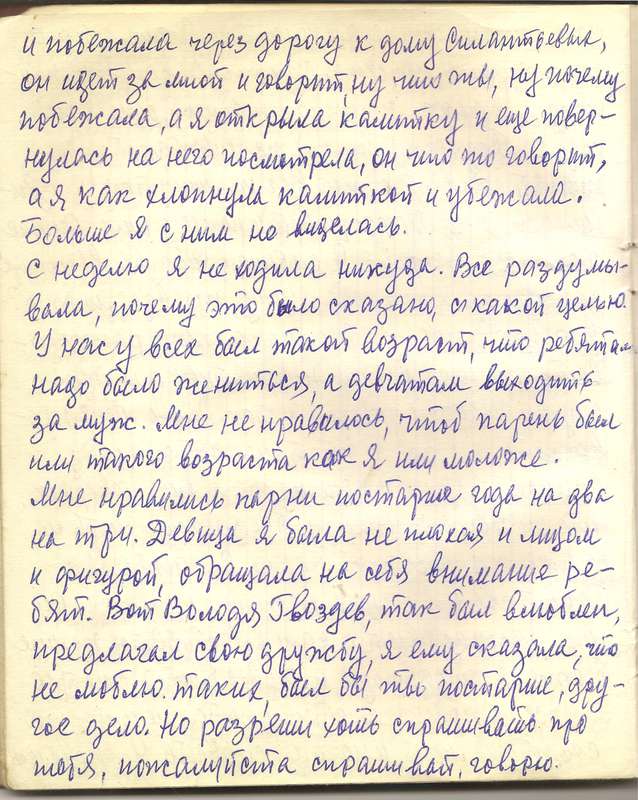 и побежала через дорогу к дому Силантьевых,
он идет за мной и говорит, ну что ты, ну почему
побежала, а я открыла калитку и еще повер-
нулась на него посмотрела, он что то говорит,
а я как хлопнула калиткой и убежала.
Больше я с ним не виделась.
С неделю я не ходила никуда. Все раздумы-
вала, почему это было сказано, с какой целью.
У нас у всех был такой возраст, что ребятам
надо было жениться, а девчатам выходить
за муж. Мне не нравилось, чтоб парень был
или такого возраста как я или моложе.
Мне нравились парни постарше года на два
на три. Девица я была не плохая и лицом
и фигурой, обращала на себя внимание ре-
бят. Вот Володя Гвоздев, так был влюблен,
предлагал свою дружбу, я ему сказала, что
не люблю таких, был бы ты постарше, дру-
гое дело. Но разреши хоть спрашивать про
тебя, пожалуйста спрашивай, говорю.